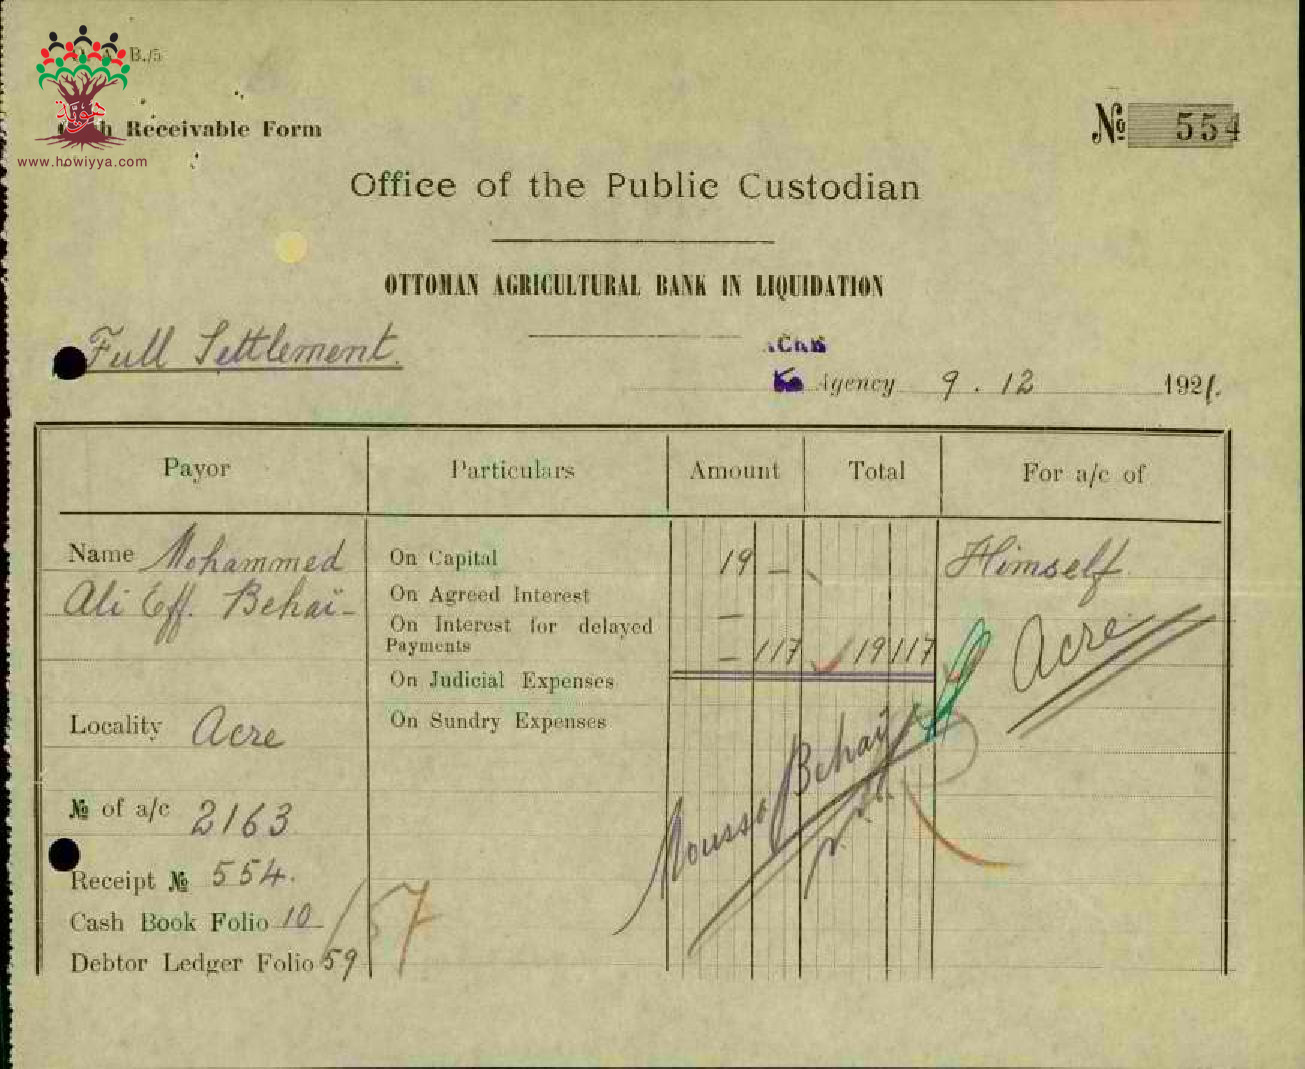 B./5
هوية
www.howiyya.com
Receivable Form
№ 554
Office of the Public Custodian
OTTOMAN AGRICULTURAL BANK IN LIQUIDATION
Full Settlement.
ACRE
Agency 9 . 12 1921.
Payor Particulars Amount Total For a/c of
Name Mohammed On Capital 19 — Himself
Ali Eff. Behaï- On Agreed Interest —
On Interest for delayed
Payments — 117 19 117 Acre
On Judicial Expenses
Locality Acre On Sundry Expenses
Moussa Behaï
№ of a/c 2163
Receipt № 554.
Cash Book Folio 10 57
Debtor Ledger Folio 59